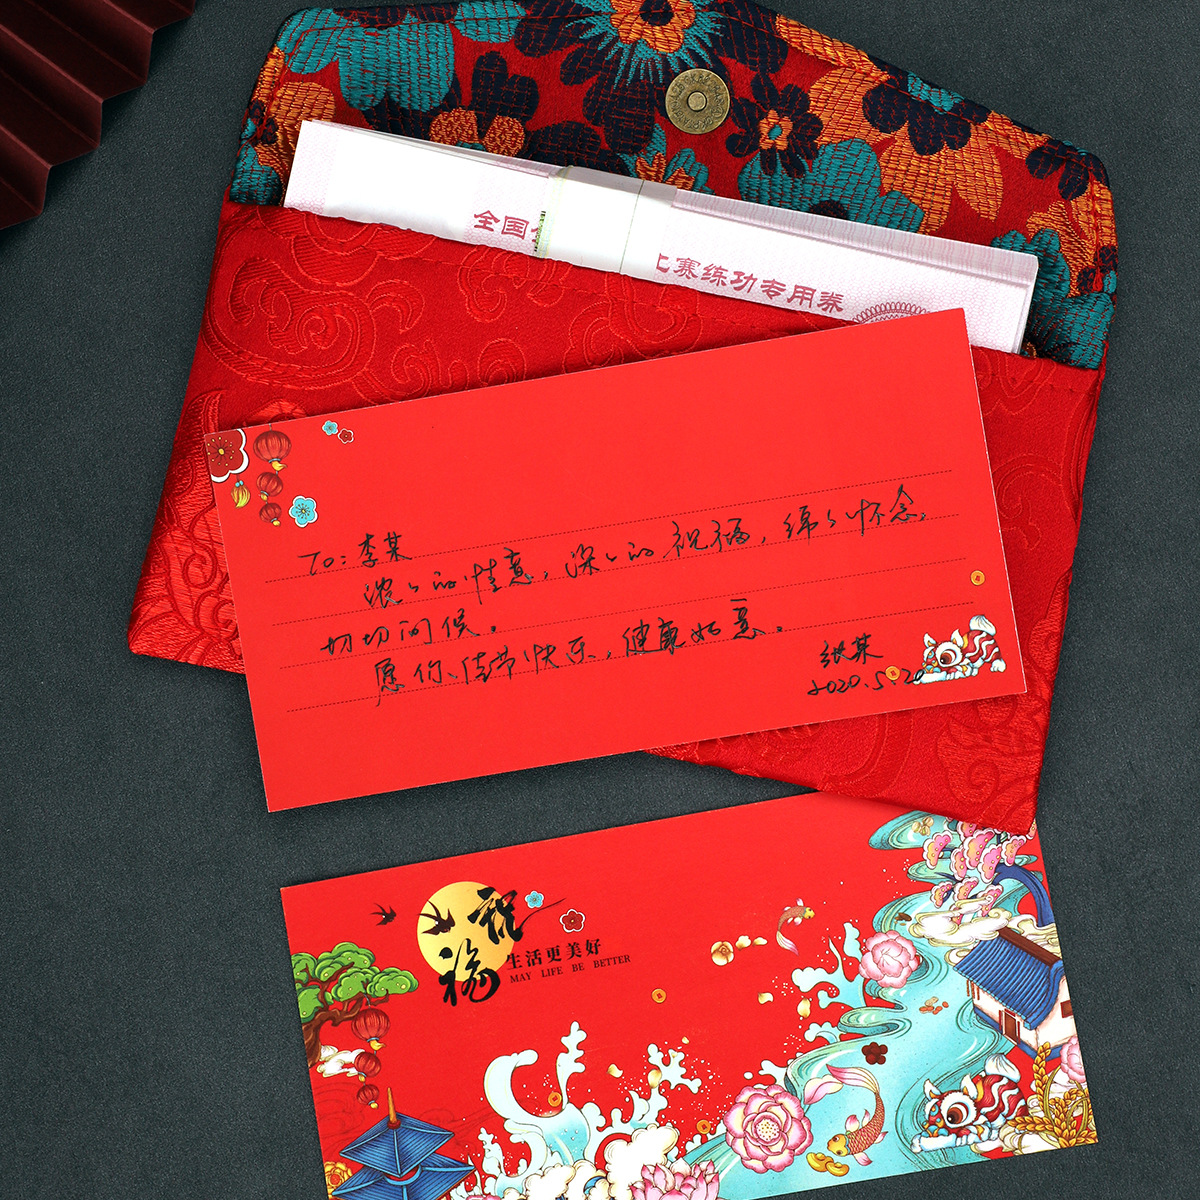 全国
比赛练功专用券
To：李某
浓浓的情意，深深的祝福，绵绵怀念，
切切问候。
愿你佳节快乐，健康如意。
纸某
2020.5.20
祝福
生活更美好
MAY LIFE BE BETTER